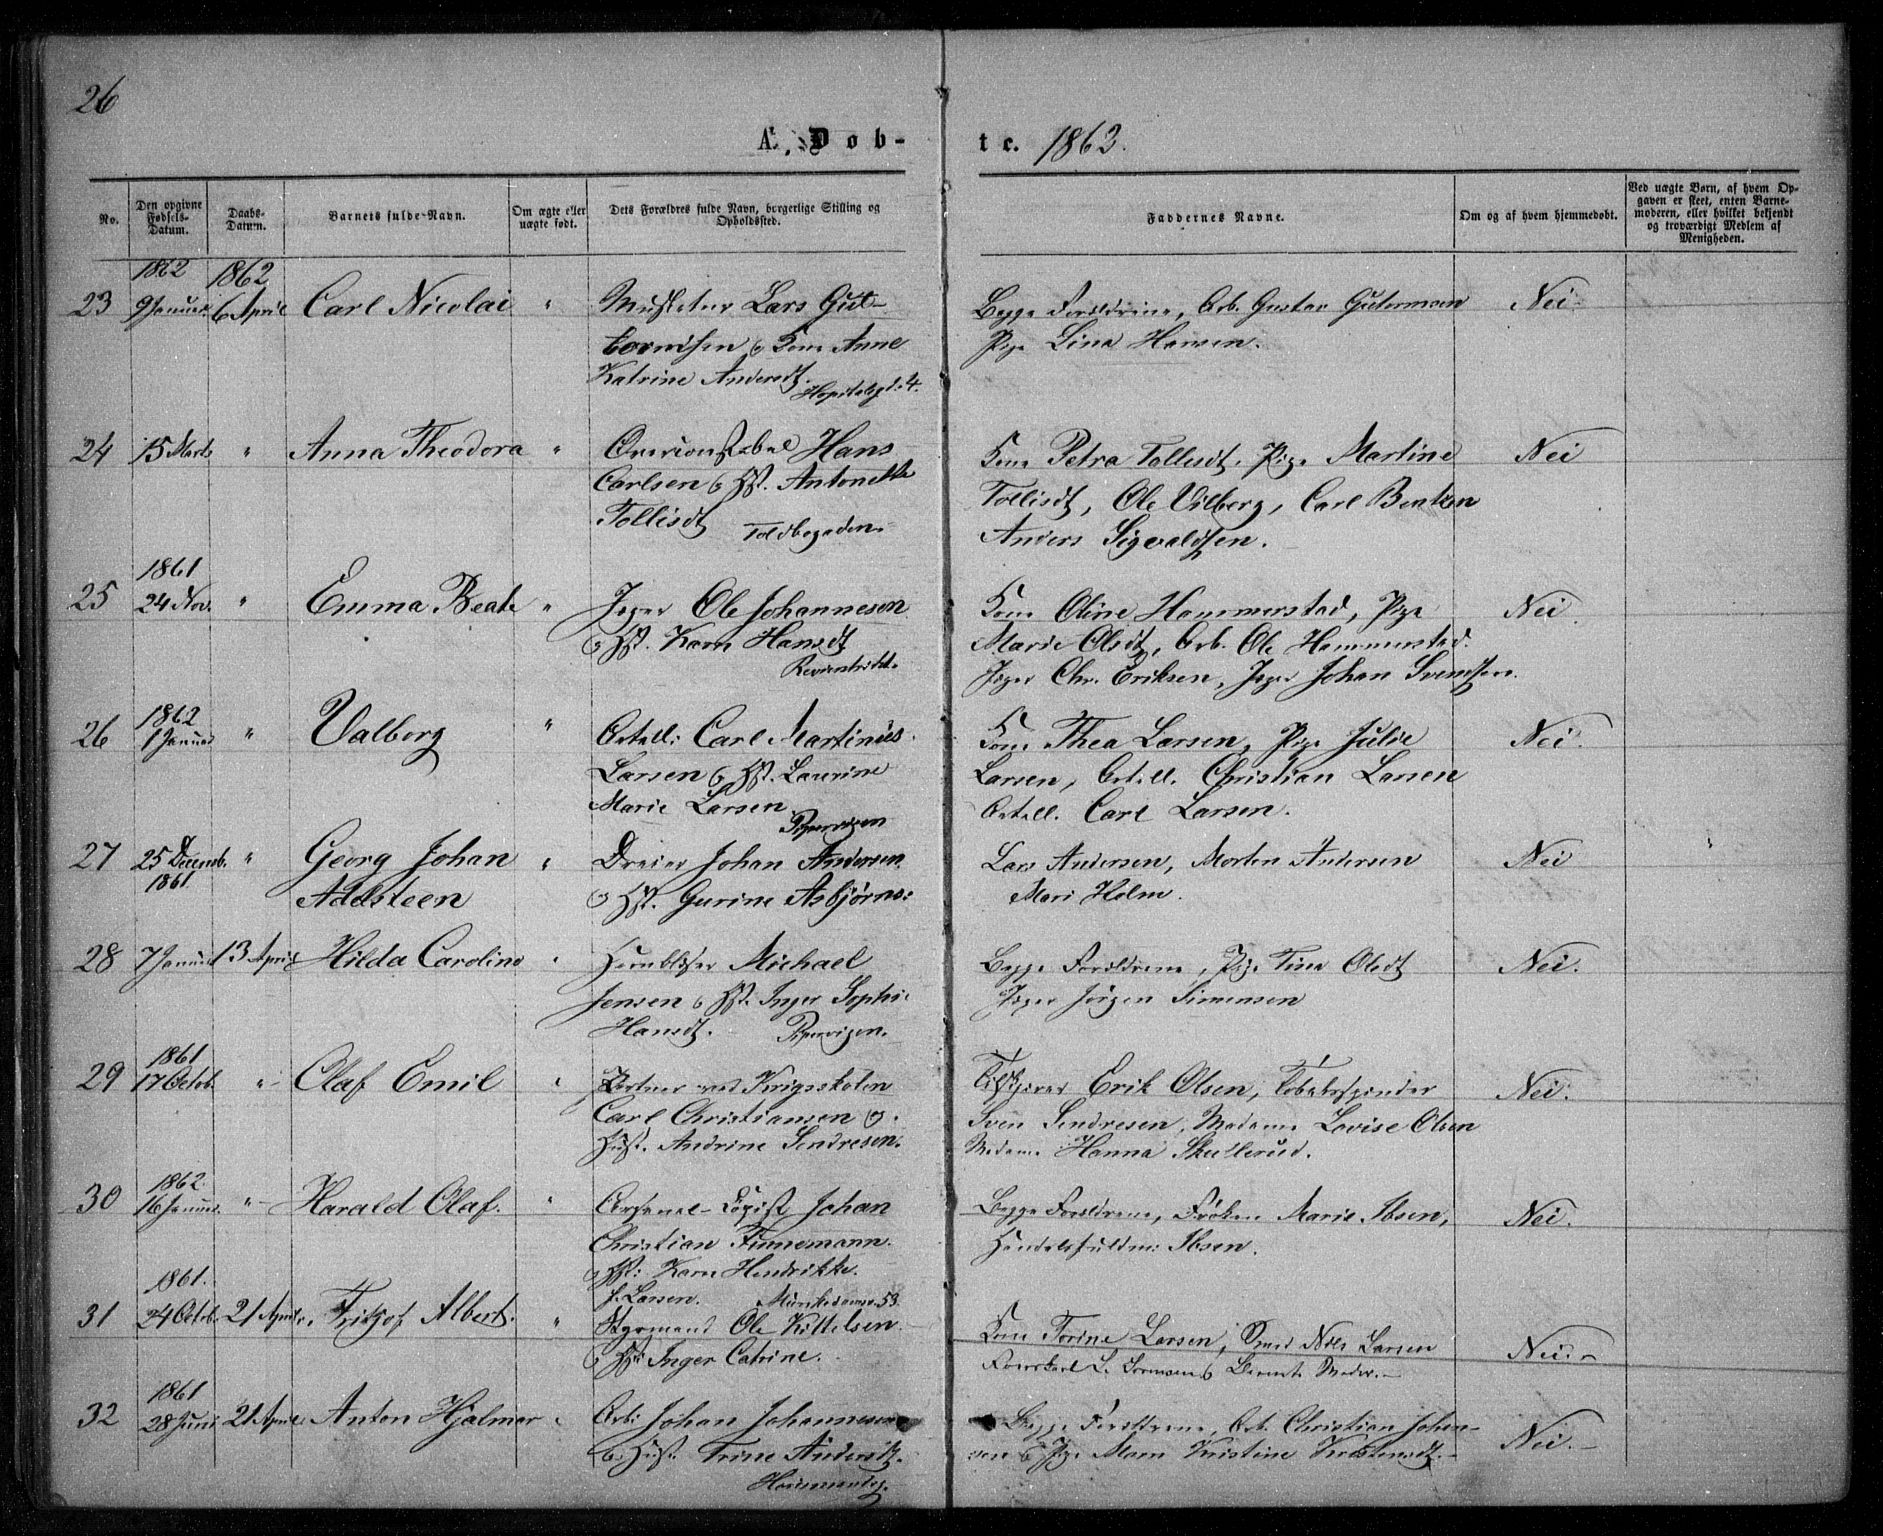 26
A. Døb-
te. 1862.
No.
Den opgivne Fødsels-Datum.
Daabs-Datum.
Barnets fulde Navn.
Om ægte eller uægte født.
Dets Forældres fulde Navn, borgerlige Stilling og Opholdssted.
Faddernes Navne.
Om og af hvem hjemmedøbt.
Ved uægte Børn, af hvem Opgaven er skeet, enten Barnemoderen, eller hvilket bekjendt og troværdigt Medlem af Menigheden.
1862 1862
23 9 Januar 6 April Carl Nicolai " Musketeer Lars Gut-
tormsen & Kone Anne
Katrine Andersdt. Hospitalsgd. 4.
Begge Forældrene, Arb. Gustav Gutormsen
Pige Lina Hansen.
Nei
24 15 Marts " Anna Theodora " Overconstabel Hans
Carlsen & Hst. Antonette
Tollisdt Toldbogaden.
Kone Petra Tollisdt, Pige Martine
Tollisdt, Ole Vilberg, Carl Bentzen
Anders Sigvaldsen.
Nei
1861
25 24 Nov. " Emma Beate " Jæger Ole Johannesen
& Hst. Karn Hansdt
Kone Oline Hammerstad, Pige
Marie Olsdt, Arb. Ole Hammerstad.
Jæger Chr. Eriksen, Jæger Johan Svendsen.
Nei.
1862
26 1 Januar " Valborg " Artill: Carl Martinius
Larsen & Hst. Laurine
Marie Larsen
Pipervigen
Kone Thea Larsen, Pige Julie
Larsen, Artill. Christian Larsen
Artill. Carl Larsen.
Nei.
27 25 Decemb. " Georg Johan " Dreier Johan Andersen
1861. Adelsteen & Hst. Gurine Asbjørns:
Lars Andersen, Morten Andersen
Mari Holm.
Nei
28 7 Januar 13 April Hilda Caroline " Hornblæser Michael
Jensen & Hst. Inger Sophie
Hansdt. Pipervigen.
Begge Forældrene, Pige Tina Olsdt
Jæger Jörgen Simensen
Nei.
1861
29 17 Octob. " Olaf Emil " Portner ved Krigsskolen
Carl Christiansen og
Hust. Andrine Sendresen.
Erik Olsen, Tobaksspinder
Sven Sendresen, Madame Lovise Olsen
Madame Hanna Skullerud.
Nei.
1862
30 16 Januar " Harald Olaf. " Arsenal- Johan
Christian Finnemann.
& Hst: Karn Hendrikke
f. Larsen. Munkedamsv. 53
Begge Forældrene, Frøken Marie Ibsen,
Handelsfuldm: Ibsen.
Nei.
1861.
31 24 Octob. 21 April Fritjof Albert. " Styrmand Ole Kittelsen
& Hst: Inger Catrine.
Kone Torine Larsen, Smed Nils Larsen
Nei.
1861
32 28 Juni 21 April Anton Hjalmar " Arb: Johan Johannesen
& Hust. Trine Andersdt.
Begge Forældrene, Arb. Christian Johan-
sen & Pige Maren Kristine
Nei.